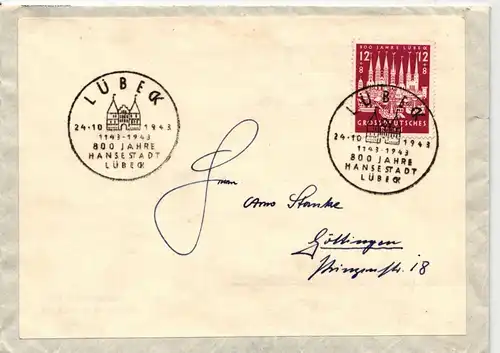 LÜBECK
24-10 1943
1143-1943
800 JAHRE
HANSESTADT
LÜBECK
800 JAHRE LÜBECK
12 12
+8 +8
GROSSDEUTSCHES
LÜBECK
24-10 1943
1143-1943
800 JAHRE
HANSESTADT
LÜBECK
Arno Stanke
Göttingen
Prinzenstr. 18